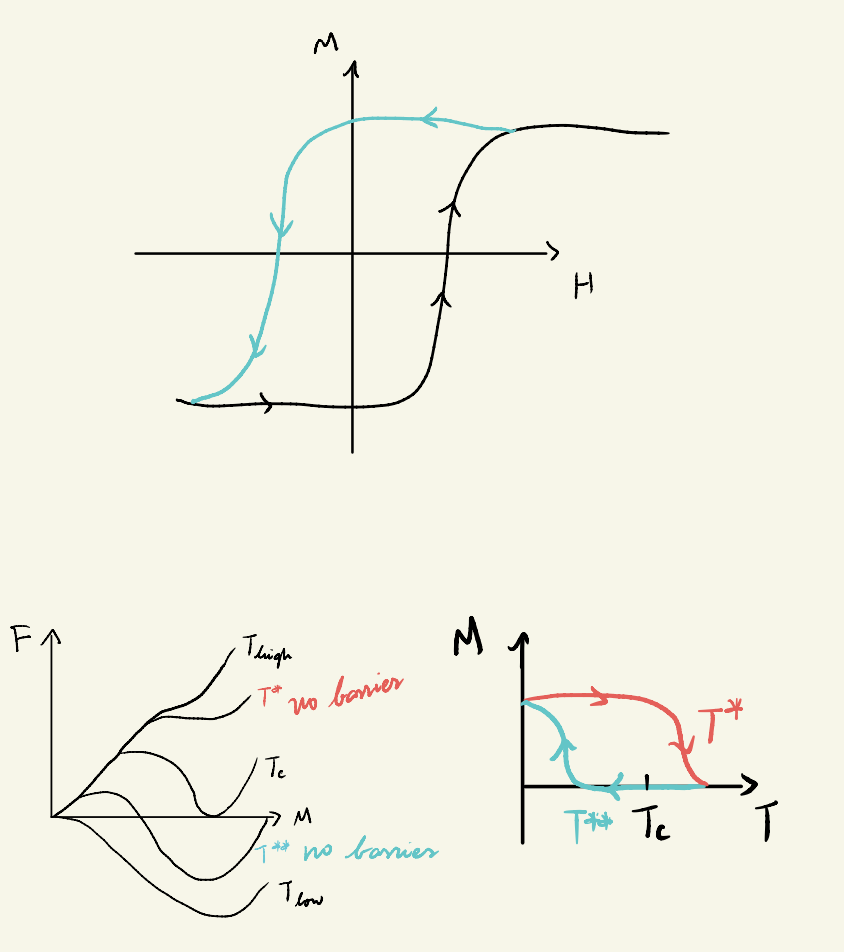 M
H
F
T high
T* no barrier
Tc
M
T** no barrier
T low
M
T*
T**
Tc
T